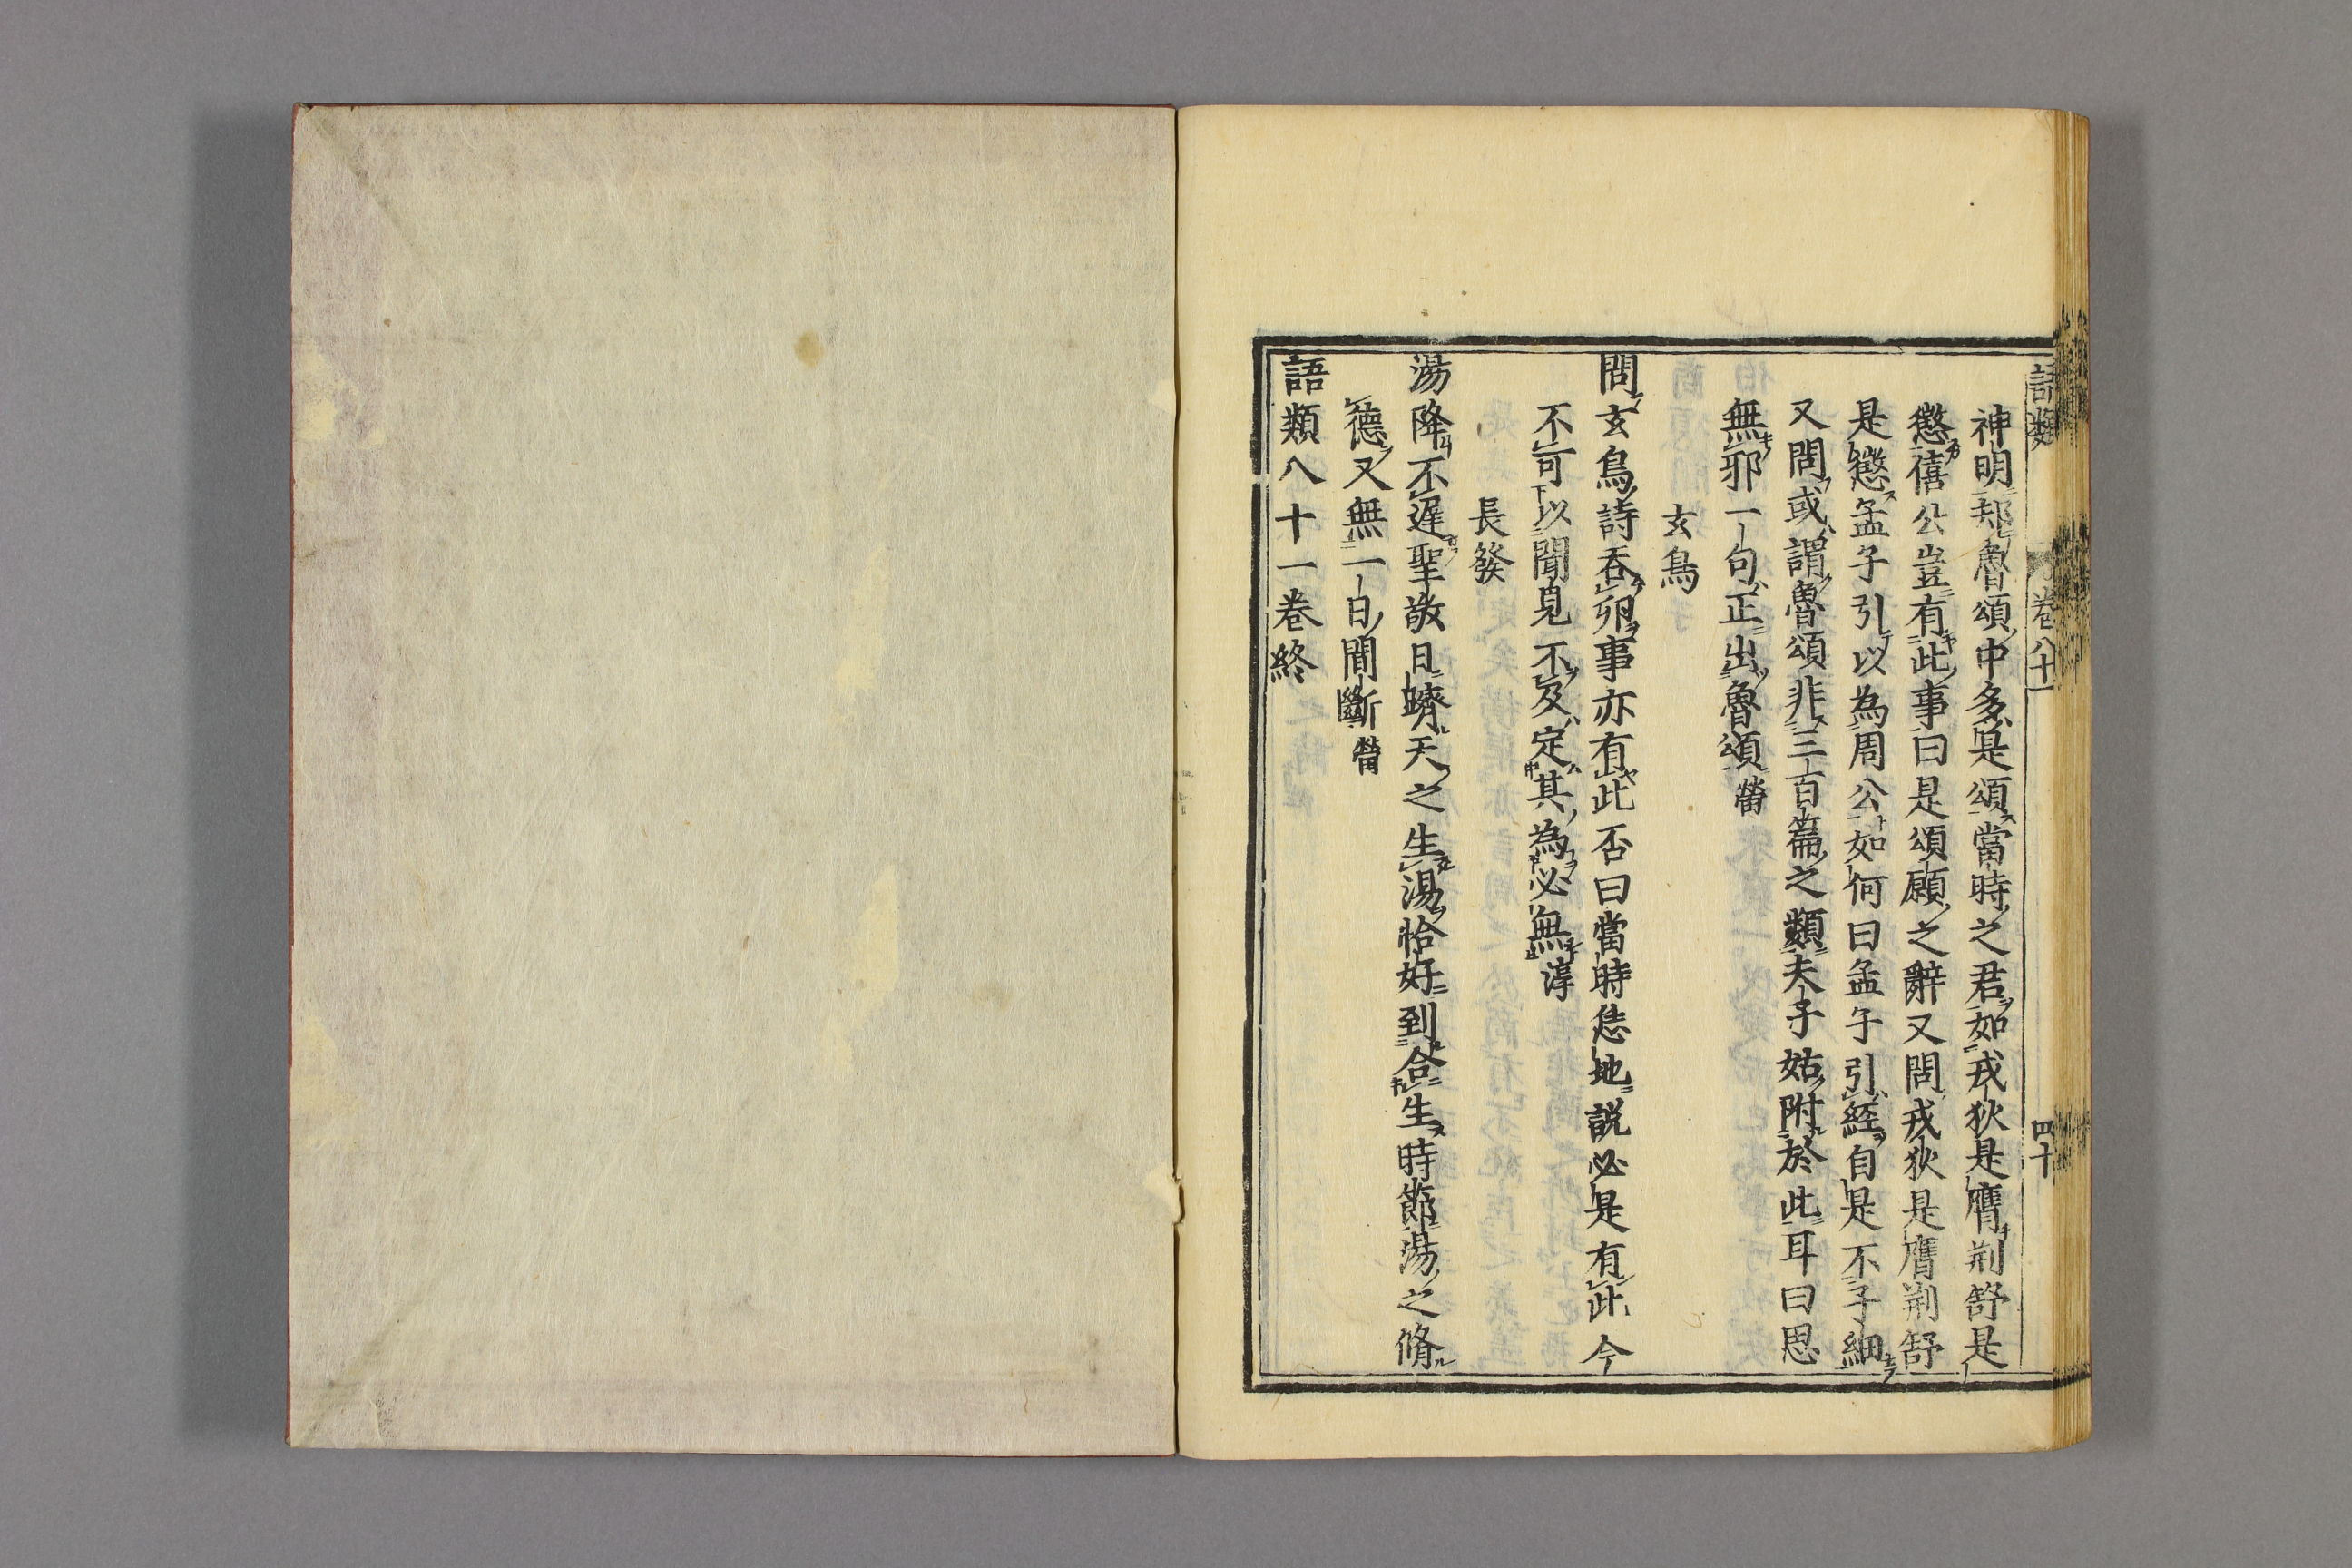 語類 卷八十一 四十
神明却魯頌中多是頌當時之君如戎狄是膺荆舒是
懲僖公豈有此事曰是頌願之辭又問戎狄是膺荆舒
是懲孟子引以為周公如何曰孟子引經自是不子細
又問或謂魯頌非三百篇之類夫子姑附於此耳曰思
無邪一句正出魯頌 㽦
玄鳥
問玄鳥詩吞卵事亦有此否曰當時恁地說必是有此今
不可以聞見不及定其為必無 淳
長發
湯降不遲聖敬日躋天之生湯恰好到合生時節湯之脩
德又無一日間斷 㽦
語類八十一卷終